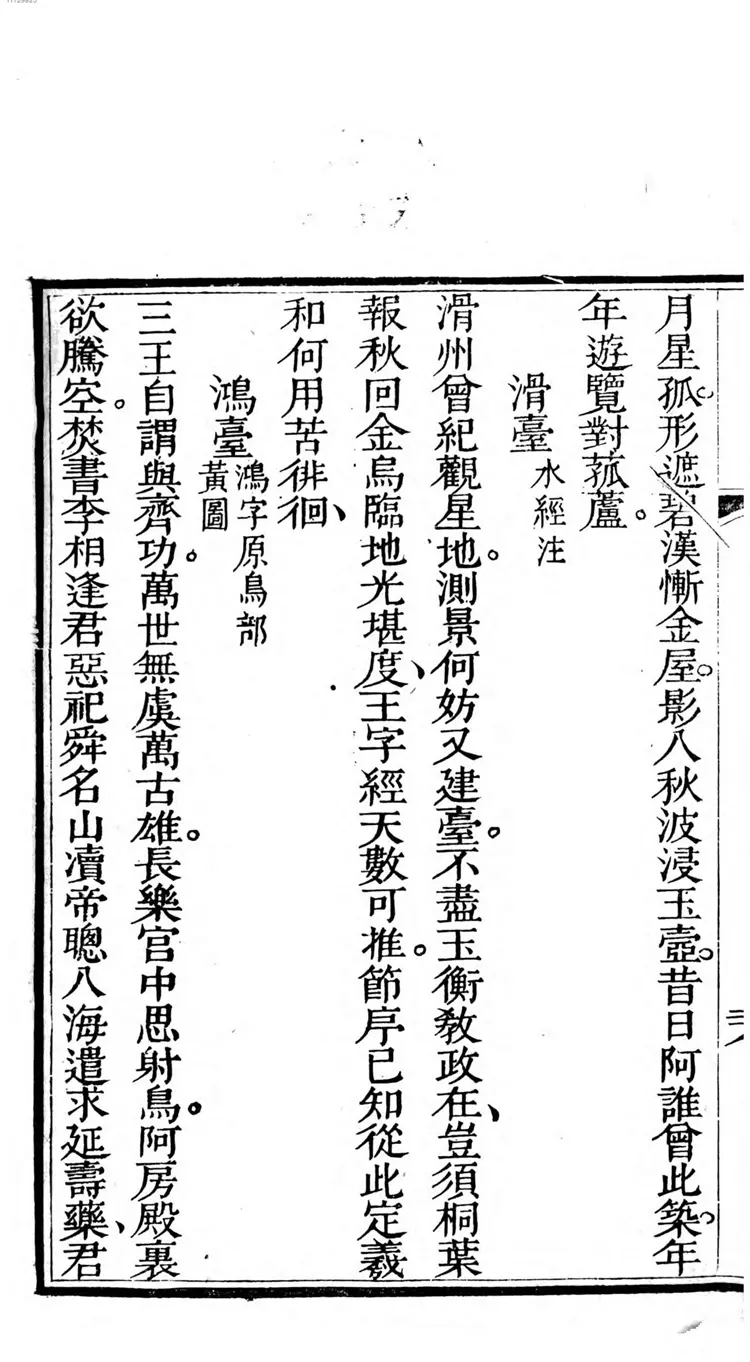 月星孤形遮碧漢慚金屋影入秋波浸玉壺昔日阿誰曾此築年
年遊覽對菰蘆
滑臺水經注
滑州曾紀觀星地測景何妨又建臺不盡玉衡敎政在豈須桐葉
報秋回金烏臨地光堪度王字經天數可推節序已知從此定羲
和何用苦徘徊
鴻臺鴻字原鳥部黃圖
三王自謂與齊功萬世無虞萬古雄長樂宮中思射鳥阿房殿裏
欲騰空焚書李相逢君惡祀舜名山凟帝聰入海遣求延壽藥君